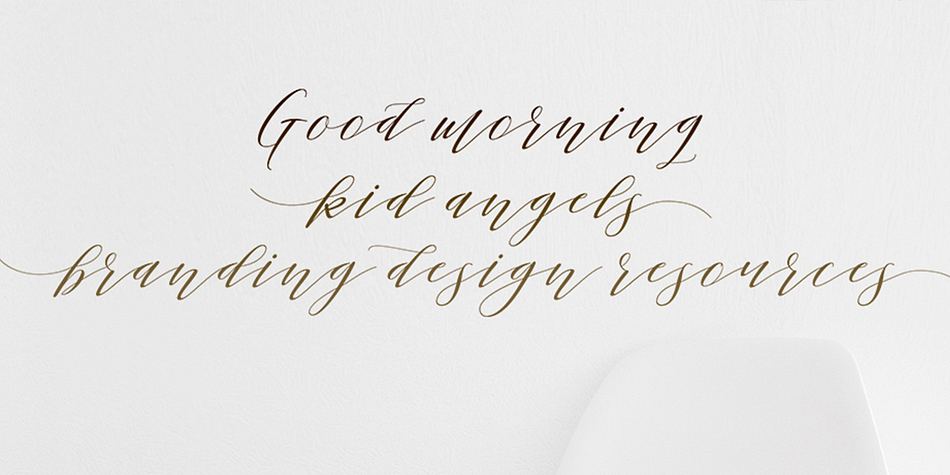 Good morning
kid angels
branding design resources